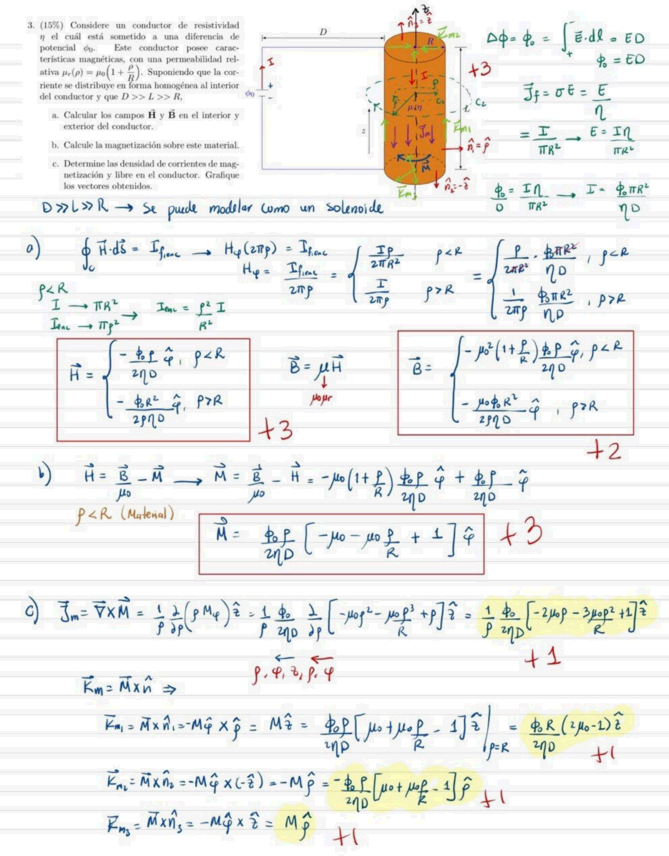 3. (15%) Considere un conductor de resistividad
η el cuál está sometido a una diferencia de
potencial ϕ₀. Este conductor posee carac-
terísticas magnéticas, con una permeabilidad rel-
ativa μᵣ(ρ) = μ₀(1 + ρ/R). Suponiendo que la cor-
riente se distribuye en forma homogénea al interior
del conductor y que D >> L >> R,
a. Calcular los campos H⃗ y B⃗ en el interior y
exterior del conductor.
b. Calcule la magnetización sobre este material.
c. Determine las densidad de corrientes de mag-
netización y libre en el conductor. Grafique
los vectores obtenidos.
D
I
ϕ₀
R
I
C₁
C₂
L
z
J⃗m
M⃗
n̂₁=ρ̂
n̂₂=-ẑ
+3
Δϕ = ϕ₀ = ∫ E⃗·dl = ED
ϕ₀ = ED
J⃗f = σE = E/η
= I/πR² → E = Iη/πR²
ϕ₀/D = Iη/πR² → I = ϕ₀πR²/ηD
D>>L>>R → Se puede modelar como un solenoide
a) ∮c H⃗·ds⃗ = If,enc → Hφ(2πρ) = If,enc
Hφ = If,enc/2πρ = { Iρ/2πR² ρ<R ; I/2πρ ρ>R = { ρ/2πR² · ϕ₀πR²/ηD , ρ<R ; 1/2πρ ϕ₀πR²/ηD , ρ>R
ρ<R
I → πR²
Ienc → πρ² → Ienc = ρ²/R² I
H⃗ = { -ϕ₀ρ/2ηD φ̂, ρ<R ; -ϕ₀R²/2ρηD φ̂, ρ>R
+3
B⃗ = μH⃗
↓
μ₀μr
B⃗ = { -μ₀²(1+ρ/R) ϕ₀ρ/2ηD φ̂, ρ<R ; -μ₀ϕ₀R²/2ρηD φ̂, ρ>R
+2
b) H⃗ = B⃗/μ₀ - M⃗ → M⃗ = B⃗/μ₀ - H⃗ = -μ₀(1+ρ/R) ϕ₀ρ/2ηD φ̂ + ϕ₀ρ/2ηD φ̂
ρ<R (Material)
M⃗ = ϕ₀ρ/2ηD [-μ₀ - μ₀ρ/R + 1] φ̂
+3
c) J⃗m = ∇⃗×M⃗ = 1/ρ ∂/∂ρ (ρMφ) ẑ = 1/ρ ϕ₀/2ηD ∂/∂ρ [-μ₀ρ² - μ₀ρ³/R + ρ] ẑ = 1/ρ ϕ₀/2ηD [-2μ₀ρ - 3μ₀ρ²/R + 1] ẑ
ρ, φ, z, ρ, φ
+1
K⃗m = M⃗×n̂ ⇒
K⃗m₁ = M⃗×n̂₁ = -Mφ̂ × ρ̂ = Mẑ = ϕ₀ρ/2ηD [μ₀ + μ₀ρ/R - 1] ẑ |ρ=R = ϕ₀R/2ηD (2μ₀-1) ẑ
+1
K⃗m₂ = M⃗×n̂₂ = -Mφ̂ × (-ẑ) = -Mρ̂ = -ϕ₀ρ/2ηD [μ₀ + μ₀ρ/R - 1] ρ̂
+1
K⃗m₃ = M⃗×n̂₃ = -Mφ̂ × ẑ = Mρ̂
+1